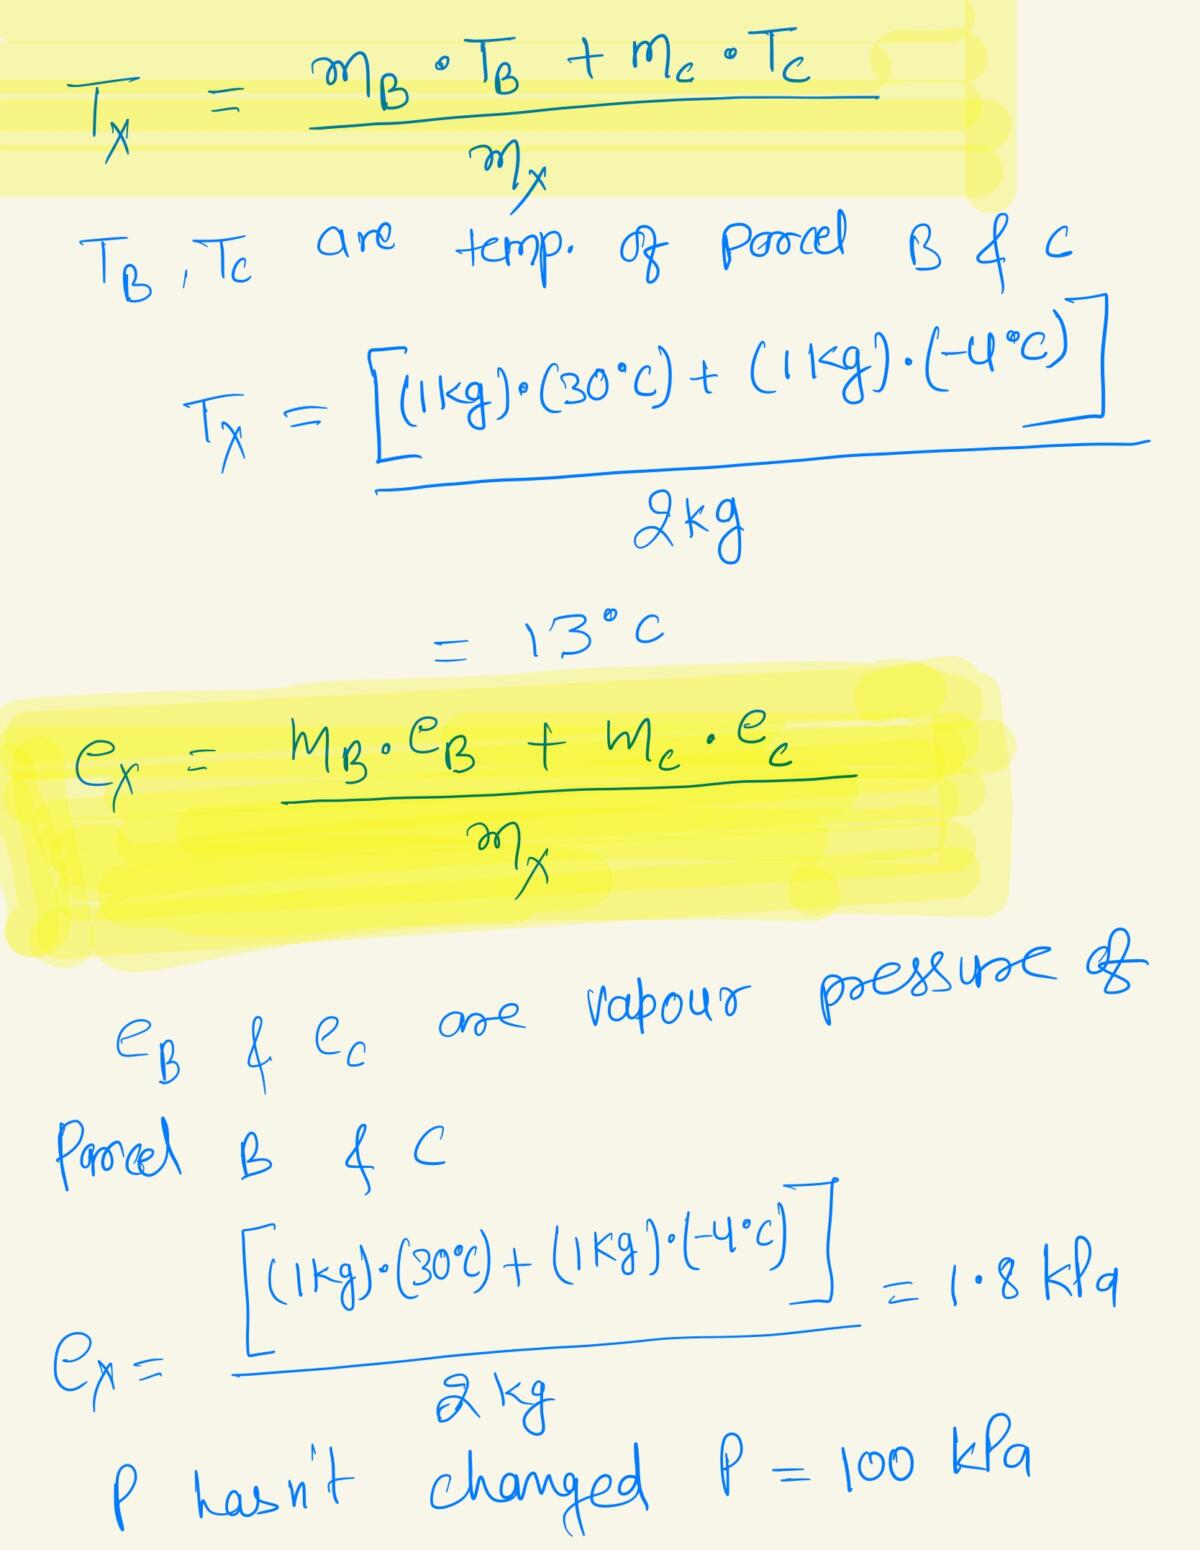 T_X = (m_B · T_B + m_C · T_C) / m_X
T_B, T_C are temp. of Parcel B & C
T_X = [(1kg)·(30°C) + (1kg)·(-4°C)] / 2kg
= 13°C
e_X = (m_B · e_B + m_C · e_C) / m_X
e_B & e_C are vapour pressure of
Parcel B & C
e_X = [(1kg)·(30°C) + (1kg)·(-4°C)] / 2kg = 1.8 kPa
P hasn't changed P = 100 kPa